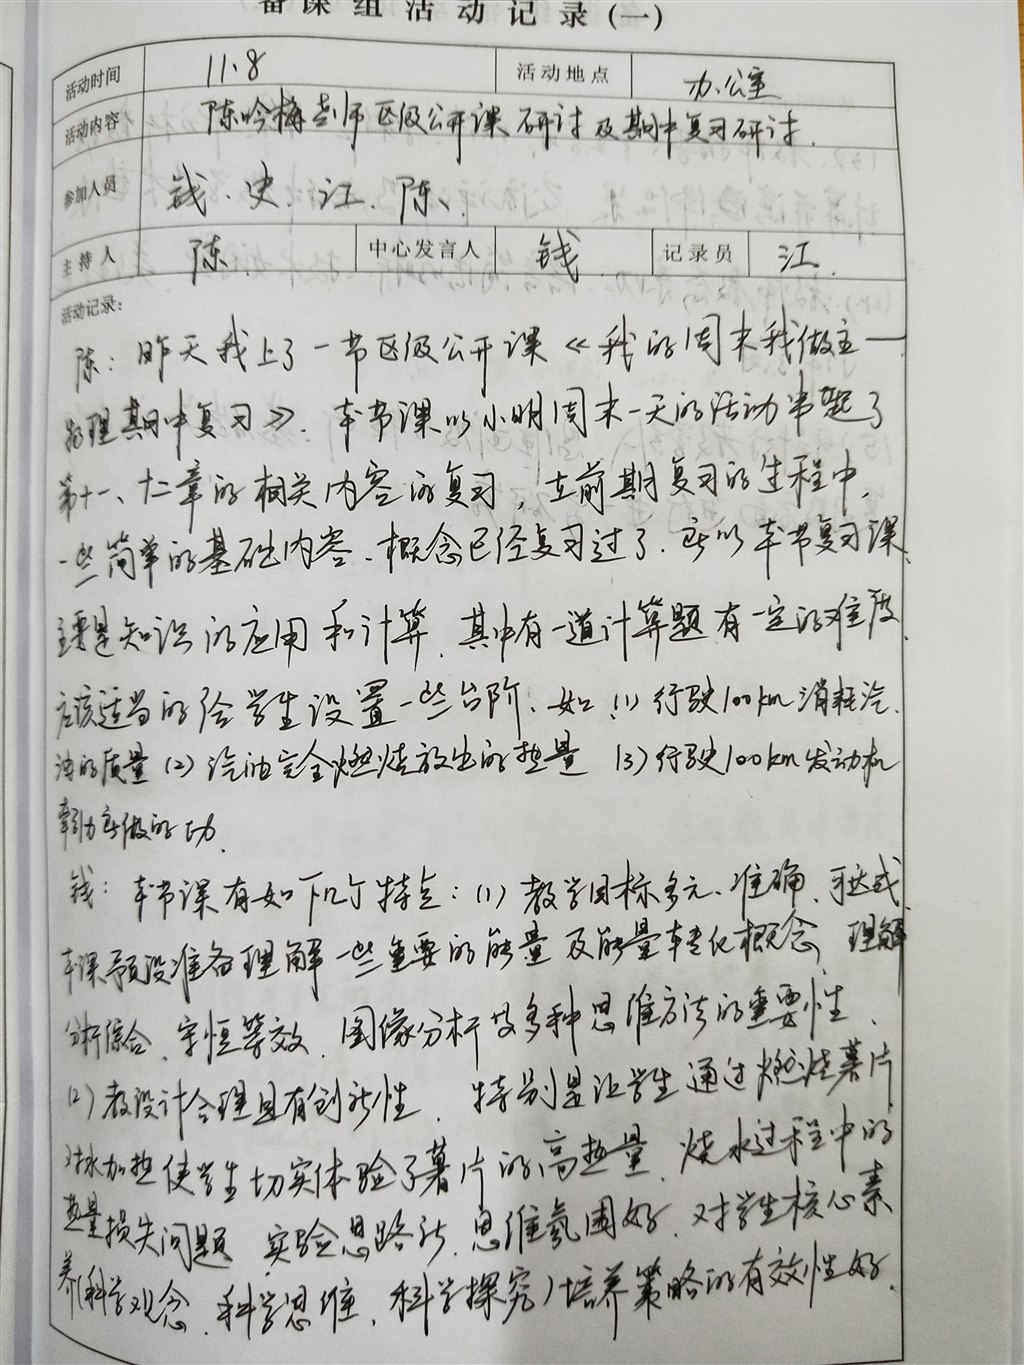 备课组活动记录(一)
活动时间 11.8 活动地点 办公室
活动内容 陈吟梅老师区级公开课研讨及期中复习研讨.
参加人员 钱、史、江、陈、
主持人 陈 中心发言人 钱 记录员 江
活动记录:
陈：昨天我上了一节区级公开课《我的周末我做主—
物理期中复习》. 本节课以小明周末一天的活动串起了
第十一、十二章的相关内容的复习, 在前期复习的过程中,
一些简单的基础内容、概念已经复习过了. 所以本节复习课
主要是知识的应用和计算. 其中有一道计算题有一定的难度
应该适当的给学生设置一些台阶、如 (1) 行驶100km消耗汽
油的质量 (2) 汽油完全燃烧放出的热量 (3) 行驶100km发动机
牵引力所做的功.
钱：本节课有如下几个特点：(1) 教学目标多元、准确、可达成
本课预设准备理解一些重要的能量及能量转化概念、理解
分析综合、守恒等效、图像分析及多种思维方法的重要性、
(2) 教设计合理且有创新性、特别是让学生通过燃烧薯片
对水加热使学生切实体验了薯片的高热量、烧水过程中的
热量损失问题、实验思路新、思维氛围好、对学生核心素
养(科学观念、科学思维、科学探究)培养策略的有效性好.